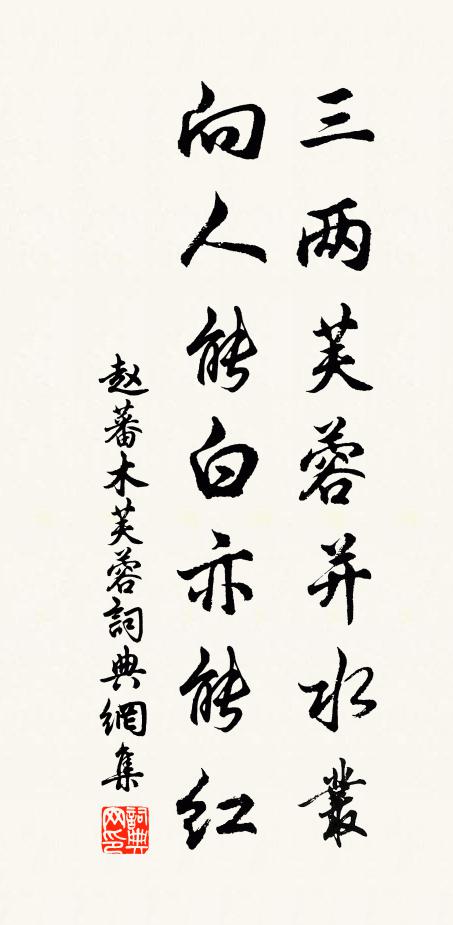 三两芙蓉并水叢
向人能白亦能红
赵蕃木芙蓉詞典網集
詞典网印